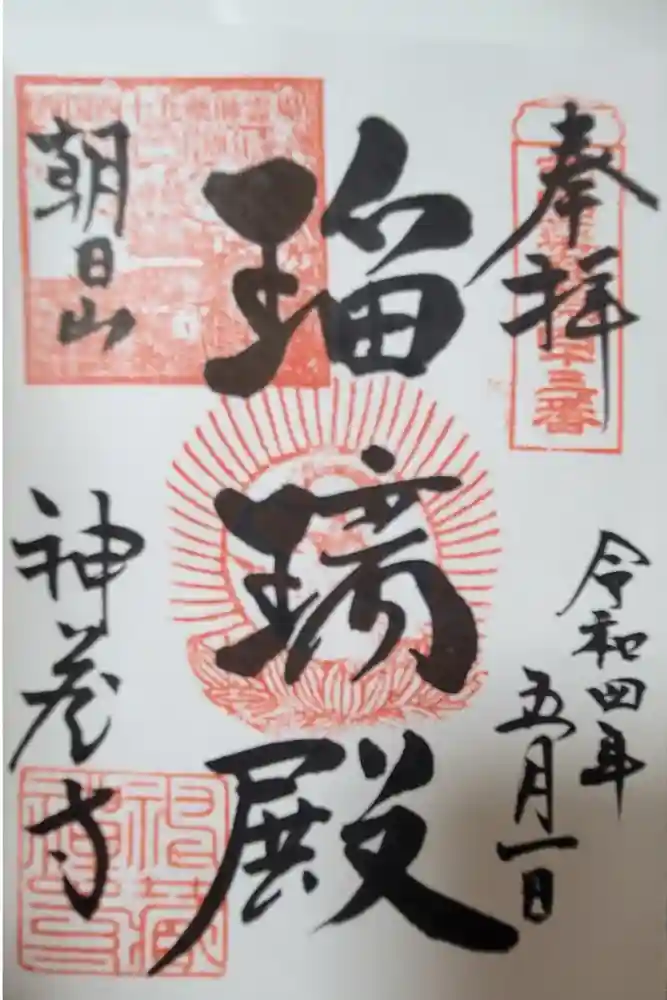 奉拝
十三番
令和四年
五月一日
瑠璃殿
朝日山
神蔵寺